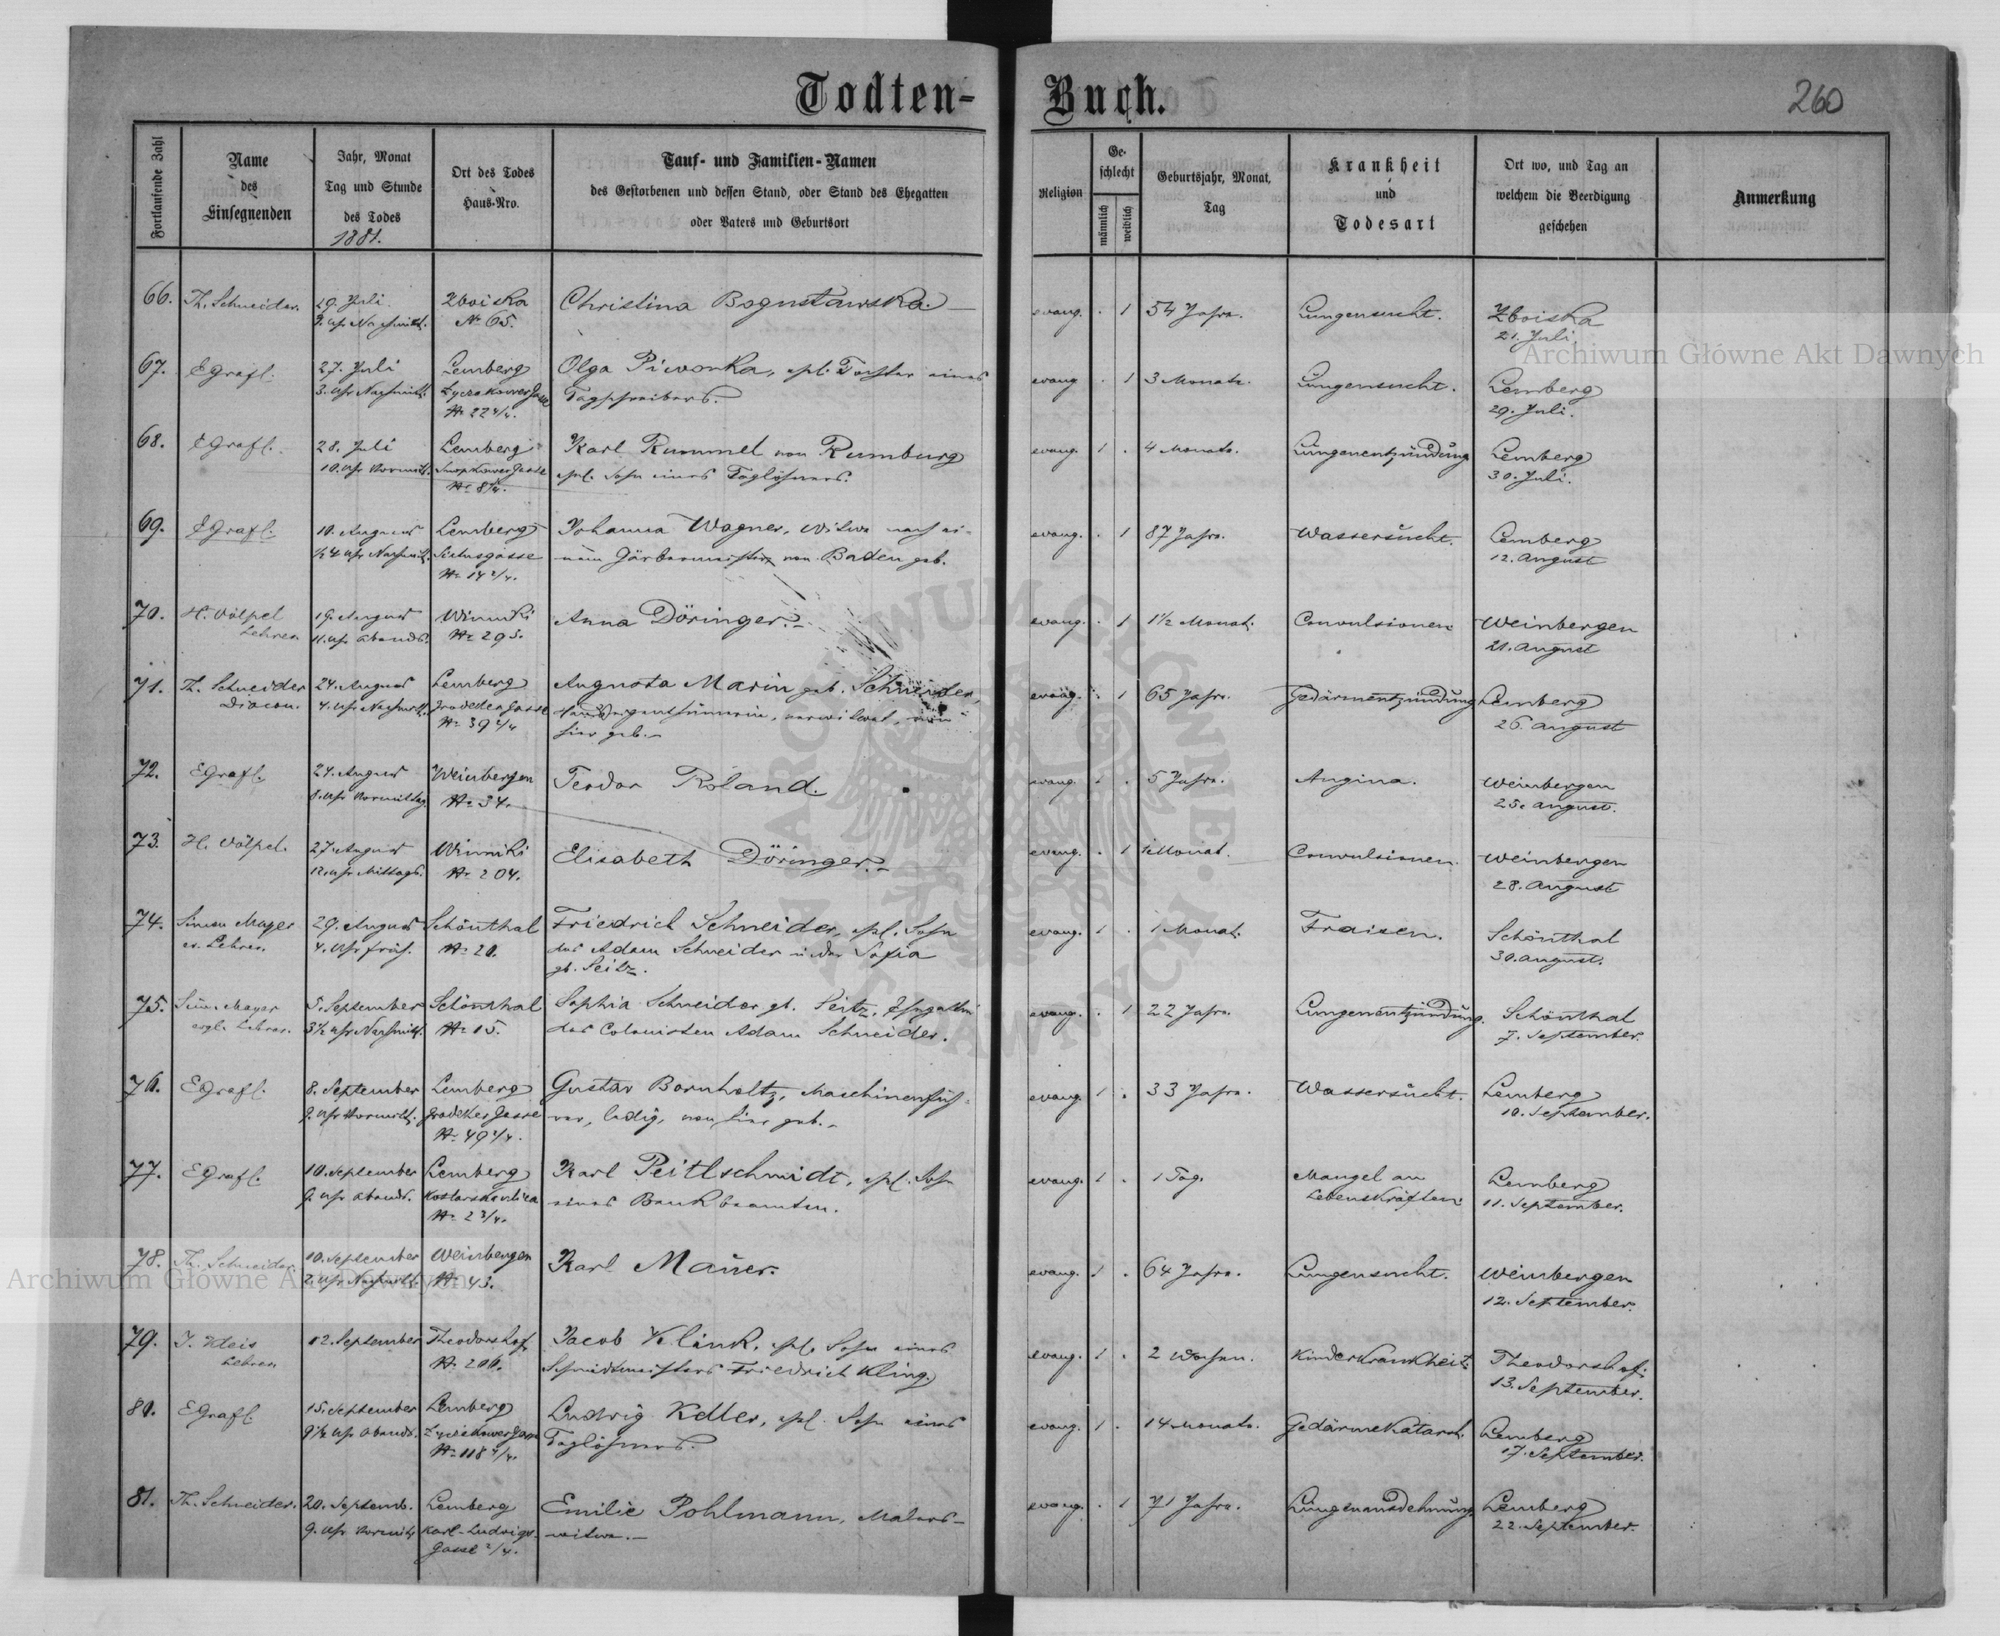 Todten-
Buch.
260
Fortlaufende Zahl
Name
des
Einsegnenden
Jahr, Monat
Tag und Stunde
des Todes
1881.
Ort des Todes
Haus-Nro.
Tauf- und Familien-Namen
des Gestorbenen und dessen Stand, oder Stand des Ehegatten
oder Vaters und Geburtsort
Religion
Ge-
schlecht
männlich
weiblich
Geburtsjahr, Monat,
Tag
Krankheit
und
Todesart
Ort wo, und Tag an
welchem die Beerdigung
geschehen
Anmerkung
66. Th. Schneider. 29. Juli Zboiska Christina Bogusławska. evang. . 1 54 Jahre. Lungensucht. Zboiska
Uhr Nachmitt. No 65. 21. Juli.
67. EGrafl. 27. Juli Lemberg Olga Piwonka, ehel. Tochter eines evang . 1 3 Monate. Lungensucht. Lemberg
3. Uhr Nachmitt. Lyczakower Gasse Tagschreibers. 29. Juli.
No 22 4/4.
68. EGrafl. 28. Juli Lemberg Karl Rummel von Rumburg evang. 1 . 4 Monate. Lungenentzündung Lemberg
10. Uhr Vormitt. Gasse ehel. Sohn eines Taglöhners. 30. Juli.
69. EGrafl. 10. August Lemberg Johanna Wagner, Witwe nach ei- evang. . 1 87 Jahre. Wassersucht. Lemberg
1/2 4 Uhr Nachmitt. Sixtusgasse nem Gärbermeister von Baden geb. 12. August
No 14 2/4.
70. H. Völpel 19. August Winniki Anna Döringer.- evang. . 1 1 1/2 Monat. Convulsionen Weinbergen
Lehrer 11. Uhr Abends. No 295. 21. August
71. Th. Schneider 24. August Lemberg Augusta Marin geb. Schneider, evang. . 1 65 Jahre. Gedärmentzündung Lemberg
Diacon. 4. Uhr Nachmitt. Grodeker Gasse Hauseigenthümerin, verwitwet, von 26. August
No 39 2/4 hier geb.-
72. EGrafl. 24. August Weinbergen Teodor Roland. evang. 1 . 5 Jahre. Angina. Weinbergen
8. Uhr Vormittag No 34. 25. August.
73. H. Völpel. 27. August Winniki Elisabeth Döringer.- evang. . 1 Monat. Convulsionen. Weinbergen
12. Uhr Mittags. No 204. 28. August
74. Simon Mayer 29. August Schönthal Friedrich Schneider, ehel. Sohn evang. 1 . 1 Monat. Fraisen. Schönthal
ev. Lehrer. 4. Uhr früh. No 20. des Adam Schneider u der Sofia 30. August.
gb. Seitz.
75. Sim. Mayer 5. September Schönthal Sophia Schneider gb. Seitz, Ehegattin evang. . 1 22 Jahre. Lungenentzündung. Schönthal
evgl. Lehrer. 3 1/2 Uhr Nachmitt. No 15. des Colonisten Adam Schneider. 7. September.
76. EGrafl. 8. September Lemberg Gustav Bornholtz, Maschinenfüh- evang. 1 . 33 Jahre. Wassersucht. Lemberg
9. Uhr Vormitt. Grodeker Gasse rer, ledig, von hier geb.- 10. September.
No 49 2/4.
77. EGrafl. 10. September Lemberg Karl Peitlschmidt, ehel. Sohn evang. 1 . 1 Tag. Mangel an Lemberg
9. Uhr Abends. eines Bankbeamten. Lebenskräften 11. September.
No 2 3/4.
78. Th. Schneider. 10. September Weinbergen Karl Mauer. evang. 1 . 64 Jahre. Lungensucht. Weinbergen
2. Uhr Nachmitt. No 43. 12. September.
79. J. Kleis 12. September Theodorshof Jacob Klink, ehel. Sohn eines evang. 1 . 2 Wochen. Kinderkrankheit Theodorshof.
Lehrer Schmidtmeisters Friedrich Kling. 13. September.
80. EGrafl. 15. September Lemberg Ludwig Keller, ehel. Sohn eines evang. 1 . 14 Monate. Gedärmekatarrh. Lemberg
9 1/2 Uhr Abends. Lyczakower Gasse Taglöhners. 17. September.
No 118 4/4.
81. Th. Schneider. 20. Septemb. Lemberg Emilie Pohlmann, Malers- evang. . 1 71 Jahre. Lungenausdehnung Lemberg
9. Uhr Vormitt. Karl-Ludwigs- witwe.- 22. September.
Gasse 2/4.
Archiwum Główne Akt Dawnych
Archiwum Główne Akt Dawnych
ARCHIWUM GŁÓWNE AKT DAWNYCH